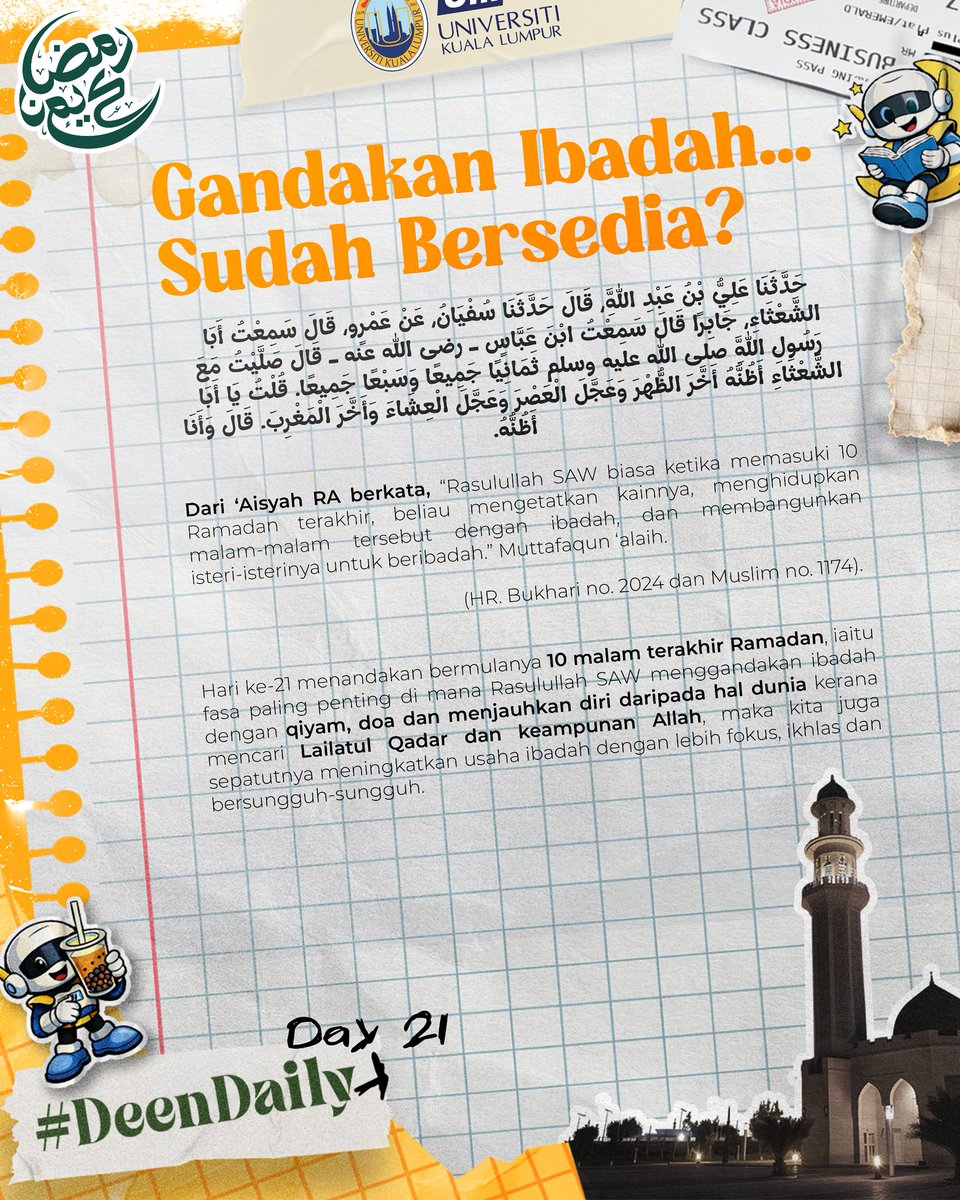 رمضان كريم
UNIVERSITI
KUALA LUMPUR
UNIVERSITI KUALA LUMPUR
BUSINESS CLASS
Gandakan Ibadah...
Sudah Bersedia?
حَدَّثَنَا عَلِيُّ بْنُ عَبْدِ اللَّهِ، قَالَ حَدَّثَنَا سُفْيَانُ، عَنْ عَمْرٍو، قَالَ سَمِعْتُ أَبَا
الشَّعْثَاءِ، جَابِرًا قَالَ سَمِعْتُ ابْنَ عَبَّاسٍ ـ رضى الله عنه ـ قَالَ صَلَّيْتُ مَعَ
رَسُولِ اللَّهِ صلى الله عليه وسلم ثَمَانِيًا جَمِيعًا وَسَبْعًا جَمِيعًا. قُلْتُ يَا أَبَا
الشَّعْثَاءِ أَظُنُّهُ أَخَّرَ الظُّهْرَ وَعَجَّلَ الْعَصْرَ وَعَجَّلَ الْعِشَاءَ وَأَخَّرَ الْمَغْرِبَ. قَالَ وَأَنَا
أَظُنُّهُ.
Dari ‘Aisyah RA berkata, “Rasulullah SAW biasa ketika memasuki 10
Ramadan terakhir, beliau mengetatkan kainnya, menghidupkan
malam-malam tersebut dengan ibadah, dan membangunkan
isteri-isterinya untuk beribadah.” Muttafaqun ‘alaih.
(HR. Bukhari no. 2024 dan Muslim no. 1174).
Hari ke-21 menandakan bermulanya 10 malam terakhir Ramadan, iaitu
fasa paling penting di mana Rasulullah SAW menggandakan ibadah
dengan qiyam, doa dan menjauhkan diri daripada hal dunia kerana
mencari Lailatul Qadar dan keampunan Allah, maka kita juga
sepatutnya meningkatkan usaha ibadah dengan lebih fokus, ikhlas dan
bersungguh-sungguh.
Day 21
#DeenDaily